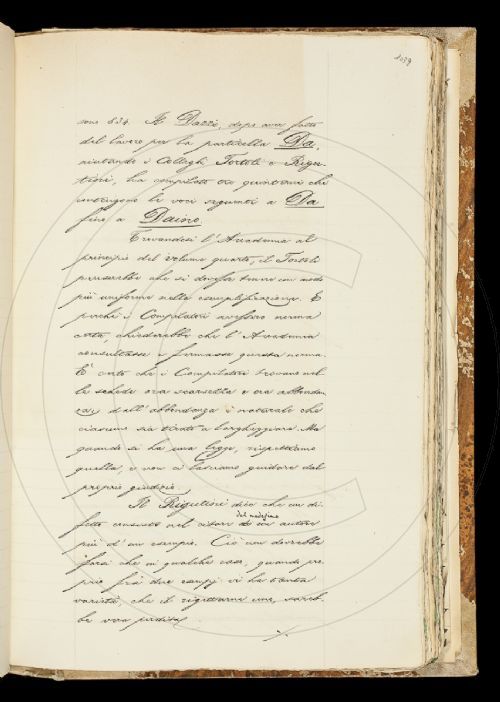 1039
sono 834. Il Dazzi, dopo aver fatto
del lavoro per la particella Da,
aiutando i Colleghi Tortoli e Rigu-
tini, ha compilato tre quinterni che
contengono le voci seguenti a Da
fino a Daino.
Trovandosi l'Accademia al
principio del volume quarto, il Tortoli
penserebbe che si dovesse tenere un modo
più uniforme nella esemplificazione. E
perché i Compilatori avessero norma
certa, chiederebbe che l'Accademia
consultasse e fermasse questa norma.
È certo che i Compilatori trovano nel-
le schede ora scarsezza e ora abbondan-
za; e dall'abbondanza è naturale che
ciascuno sia tirato a largheggiare. Ma
quando si ha una legge, rispettiamo
quella, e non ci lasciamo guidare dal
proprio giudizio.
Il Rigutini dice che un di-
del medesimo
fetto consiste nel citare di un autore
più d'un esempio. Ciò non dovrebbe
farsi che in qualche caso, quando pro-
prio fra due esempj vi ha tanta
varietà, che il rigettarne uno, sareb-
be vera perdita.